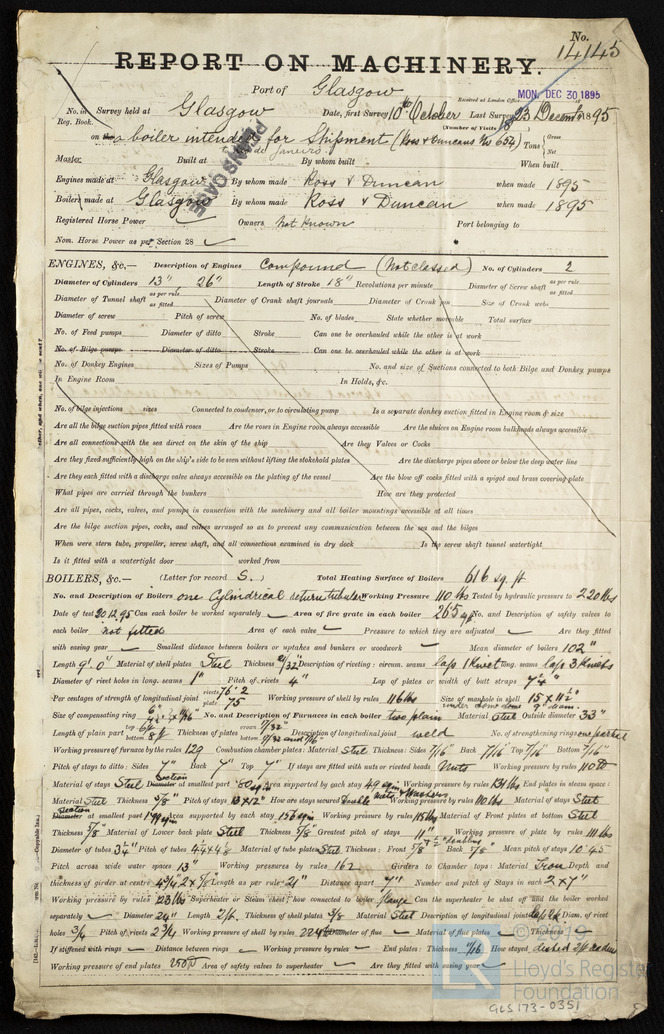 No. 14145
REPORT ON MACHINERY.
Port of Glasgow
Received at London Office MON. DEC 30 1895
No. in Reg. Book. Survey held at Glasgow Date, first Survey 10th October Last Survey 23 December 1895
(Number of Visits 18)
on the boiler intended for Shipment (Ross & Duncans No 654) Tons { Gross Net
Master Built at By whom built When built
Engines made at Glasgow By whom made Ross & Duncan when made 1895
Boilers made at Glasgow By whom made Ross & Duncan when made 1895
Registered Horse Power Owners Not Known Port belonging to
Nom. Horse Power as per Section 28
ENGINES, &c.— Description of Engines Compound (Not classed) No. of Cylinders 2
Diameter of Cylinders 13" 26" Length of Stroke 18" Revolutions per minute Diameter of Screw shaft as per rule as fitted
Diameter of Tunnel shaft as per rule as fitted Diameter of Crank shaft journals Diameter of Crank pin Size of Crank webs
Diameter of screw Pitch of screw No. of blades State whether moveable Total surface
No. of Feed pumps Diameter of ditto Stroke Can one be overhauled while the other is at work
No. of Bilge pumps Diameter of ditto Stroke Can one be overhauled while the other is at work
No. of Donkey Engines Sizes of Pumps No. and size of Suctions connected to both Bilge and Donkey pumps
In Engine Room In Holds, &c.
No. of bilge injections sizes Connected to condenser, or to circulating pump Is a separate donkey suction fitted in Engine room & size
Are all the bilge suction pipes fitted with roses Are the roses in Engine room always accessible Are the sluices on Engine room bulkheads always accessible
Are all connections with the sea direct on the skin of the ship Are they Valves or Cocks
Are they fixed sufficiently high on the ship's side to be seen without lifting the stokehold plates Are the discharge pipes above or below the deep water line
Are they each fitted with a discharge valve always accessible on the plating of the vessel Are the blow off cocks fitted with a spigot and brass covering plate
What pipes are carried through the bunkers How are they protected
Are all pipes, cocks, valves, and pumps in connection with the machinery and all boiler mountings accessible at all times
Are the bilge suction pipes, cocks, and valves arranged so as to prevent any communication between the sea and the bilges
When were stern tube, propeller, screw shaft, and all connections examined in dry dock Is the screw shaft tunnel watertight
Is it fitted with a watertight door worked from
BOILERS, &c.— (Letter for record S.) Total Heating Surface of Boilers 616 sq. ft
No. and Description of Boilers one Cylindrical return tubular Working Pressure 110 lbs Tested by hydraulic pressure to 220 lbs
Date of test 20.12.95 Can each boiler be worked separately Area of fire grate in each boiler 26.5 sq ft No. and Description of safety valves to
each boiler not fitted Area of each valve Pressure to which they are adjusted Are they fitted
with easing gear Smallest distance between boilers or uptakes and bunkers or woodwork Mean diameter of boilers 102"
Length 9'. 0" Material of shell plates Steel Thickness 21/32 Description of riveting: circum. seams laps 1 Rivet long. seams laps 3 Rivets
Diameter of rivet holes in long. seams 1" Pitch of rivets 4" Lap of plates or width of butt straps 7 1/4"
Per centages of strength of longitudinal joint rivets 76.2 plate 75 Working pressure of shell by rules 116 lbs Size of manhole in shell 15 x 11 1/2"
Size of compensating ring No. and Description of Furnaces in each boiler two plain Material Steel Outside diameter 33"
Length of plain part top bottom Thickness of plates crown 17/32" bottom Description of longitudinal joint weld No. of strengthening rings
Working pressure of furnace by the rules 129 Combustion chamber plates: Material Steel Thickness: Sides 7/16" Back 7/16" Top 7/16" Bottom 7/16"
Pitch of stays to ditto: Sides 7" Back 7" Top 7" If stays are fitted with nuts or riveted heads Nuts Working pressure by rules 110
Material of stays Steel Section at smallest part Area supported by each stay 49 Working pressure by rules 131 lbs End plates in steam space:
Material Steel Thickness 5/8" Pitch of stays 13 x 12" How are stays secured Double Nuts & Washers Working pressure by rules 110 lbs Material of stays Steel
Section at smallest part Area supported by each stay 156 Working pressure by rules 115 lbs Material of Front plates at bottom Steel
Thickness 5/8" Material of Lower back plate Steel Thickness 5/8" Greatest pitch of stays 11" Working pressure of plate by rules 111 lbs
Diameter of tubes 3 1/4" Pitch of tubes Material of tube plates Steel Thickness: Front 5/8" Back 5/8" Mean pitch of stays 10.45
Pitch across wide water spaces 13" Working pressures by rules 162 Girders to Chamber tops: Material Iron Depth and
thickness of girder at centre Length as per rule 21" Distance apart 7" Number and pitch of Stays in each 2 x 7"
Working pressure by rules 123 lbs Superheater or Steam chest; how connected to boiler flange Can the superheater be shut off and the boiler worked
separately Diameter 24" Length 2/6 Thickness of shell plates 3/8 Material Steel Description of longitudinal joint Diam. of rivet
holes 3/4 Pitch of rivets 2 3/4 Working pressure of shell by rules 224 Diameter of flue Material of flue plates Thickness
If stiffened with rings Distance between rings Working pressure by rules End plates: Thickness 11/16 How stayed
Working pressure of end plates Area of safety valves to superheater Are they fitted with easing gear
Lloyd's Register
Foundation
GLS173-0351